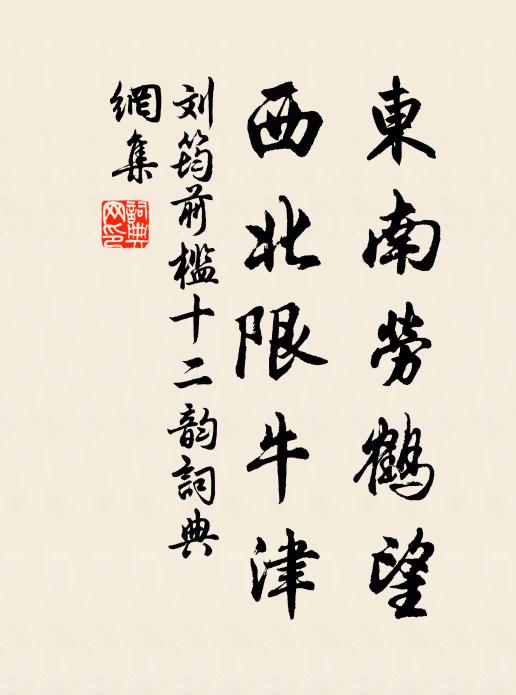 東南勞鶴望
西北限牛津
刘筠前檻十二韵詞典
網集
詞典網印